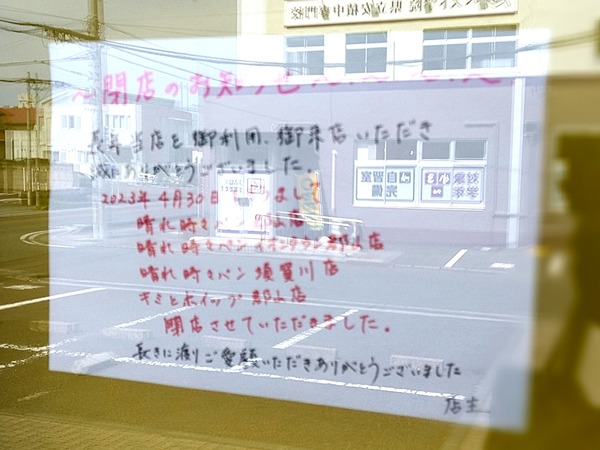 ~閉店のお知らせ~
長年当店を御利用、御来店いただき
ありがとうございました。
2023年4月30日
晴れ時々 郡山店
晴れ時々パン イオンタウン郡山店
晴れ時々パン 須賀川店
キミとホイップ 郡山店
閉店させていただきました。
長きに渡りご愛顧いただきありがとうございました
店主
自習室
完備